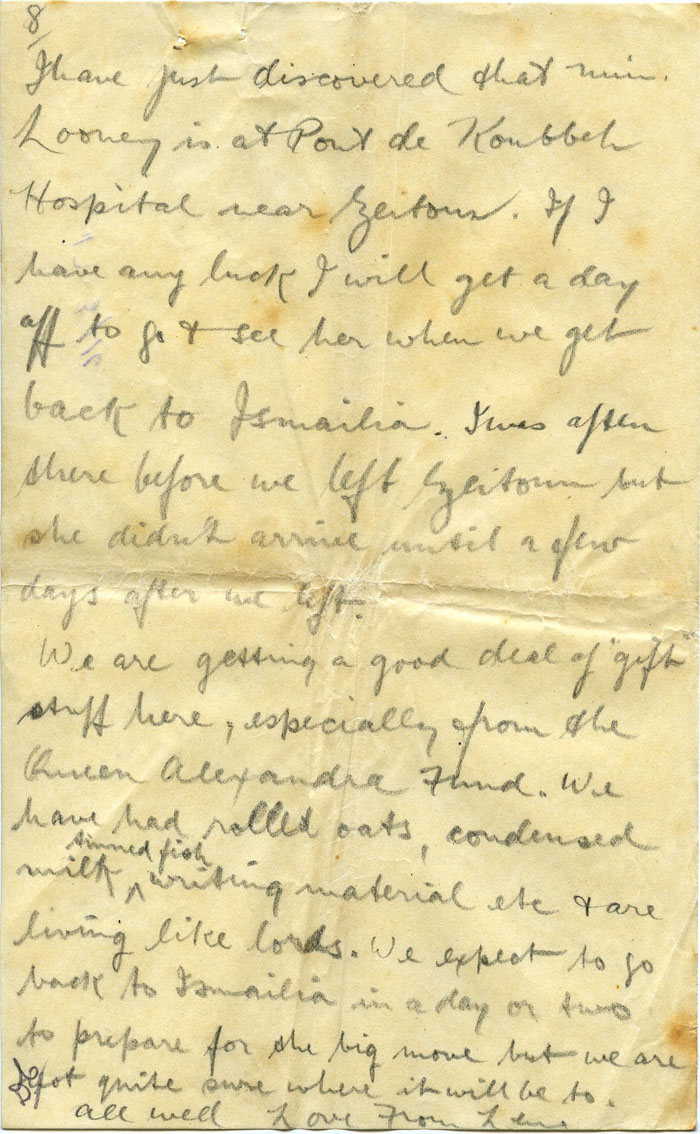 8/
I have just discovered that Min.
Looney is at Pont de Koubbeh
Hospital near Zeitoun. If I
have any luck I will get a day
off to go & see her when we get
back to Ismailia. I was often
there before we left Zeitoun but
she didn't arrive until a few
days after we left.
We are getting a good deal of "gift"
stuff here, especially from the
Queen Alexandra Fund. We
have had rolled oats, condensed
tinned fish
milk, ^ writing material etc & are
living like lords. We expect to go
back to Ismailia in a day or two
to prepare for the big move but we are
not quite sure where it will be to.
All well Love From Len